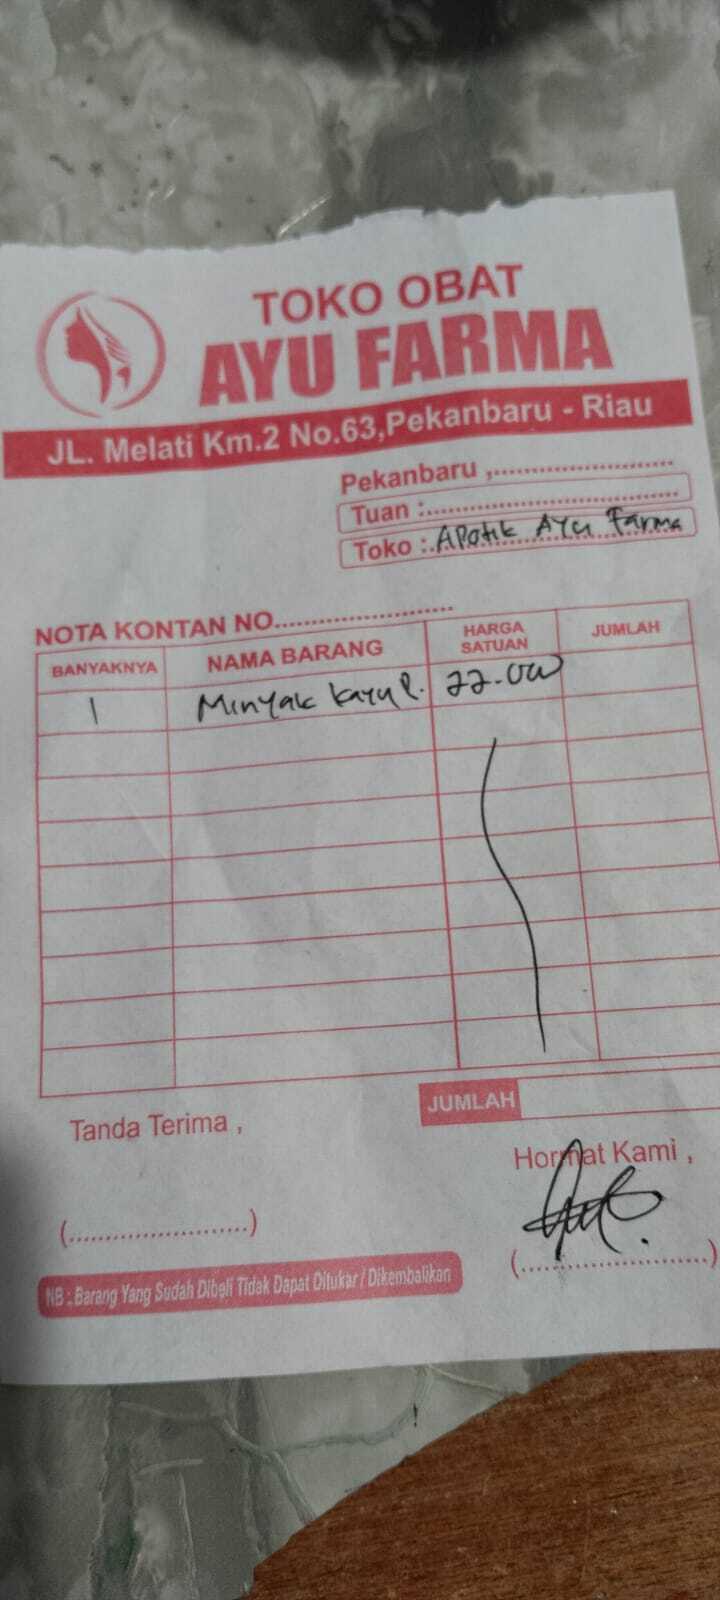 TOKO OBAT
AYU FARMA
JL. Melati Km.2 No.63,Pekanbaru - Riau
Pekanbaru ,........................
Tuan :..................................
Toko : Apotik Ayu Farma
NOTA KONTAN NO........................
BANYAKNYA NAMA BARANG HARGA SATUAN JUMLAH
1 Minyak kayu P. 22.000
JUMLAH
Tanda Terima ,
Hormat Kami ,
(........................)
(........................)
NB : Barang Yang Sudah Dibeli Tidak Dapat Ditukar / Dikembalikan